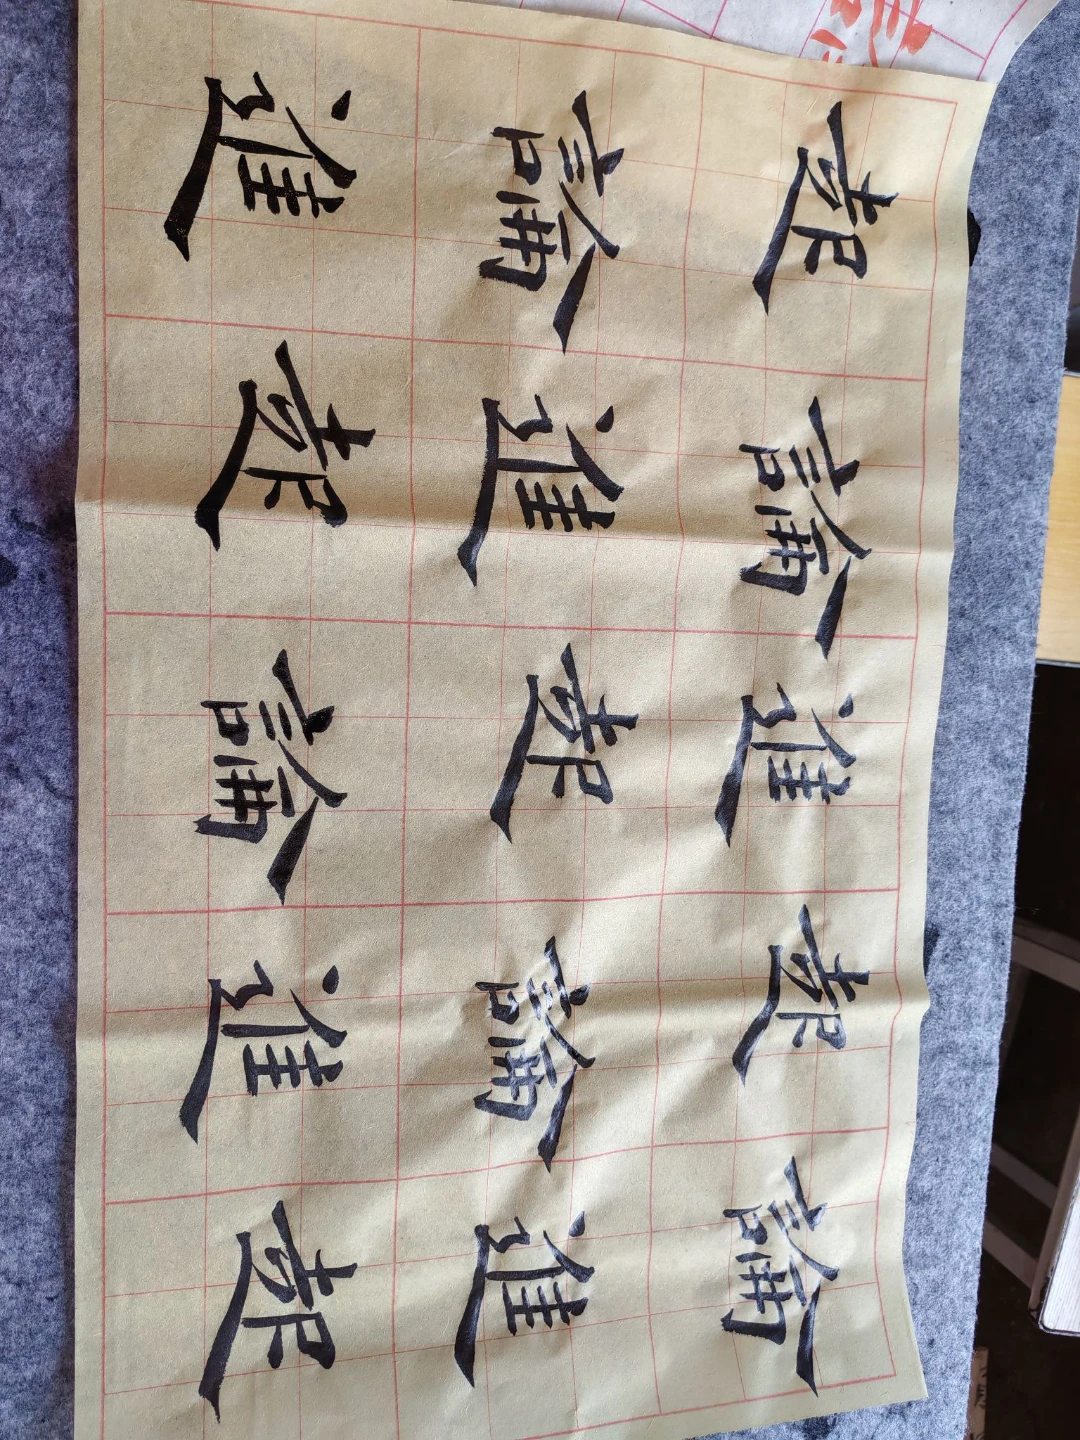 起論進起論
論進起論進
進起論進起